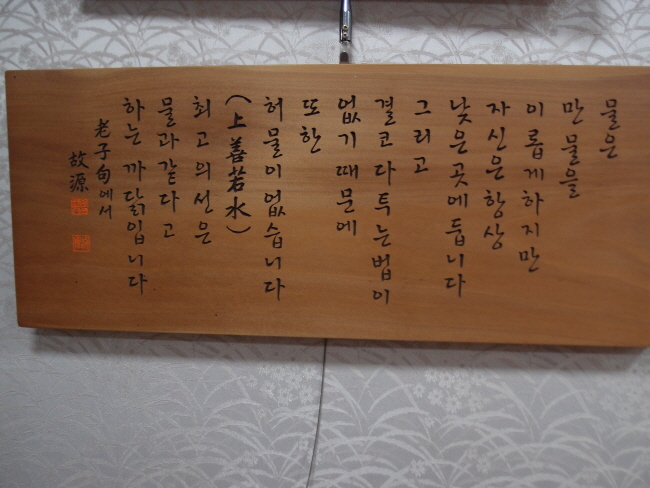 물은
만물을
이롭게하지만
자신은항상
낮은곳에둡니다
그리고
결코다투는법이
없기때문에
또한
허물이없습니다
(上善若水)
최고의선은
물과같다고
하는까닭입니다
老子句에서
故源